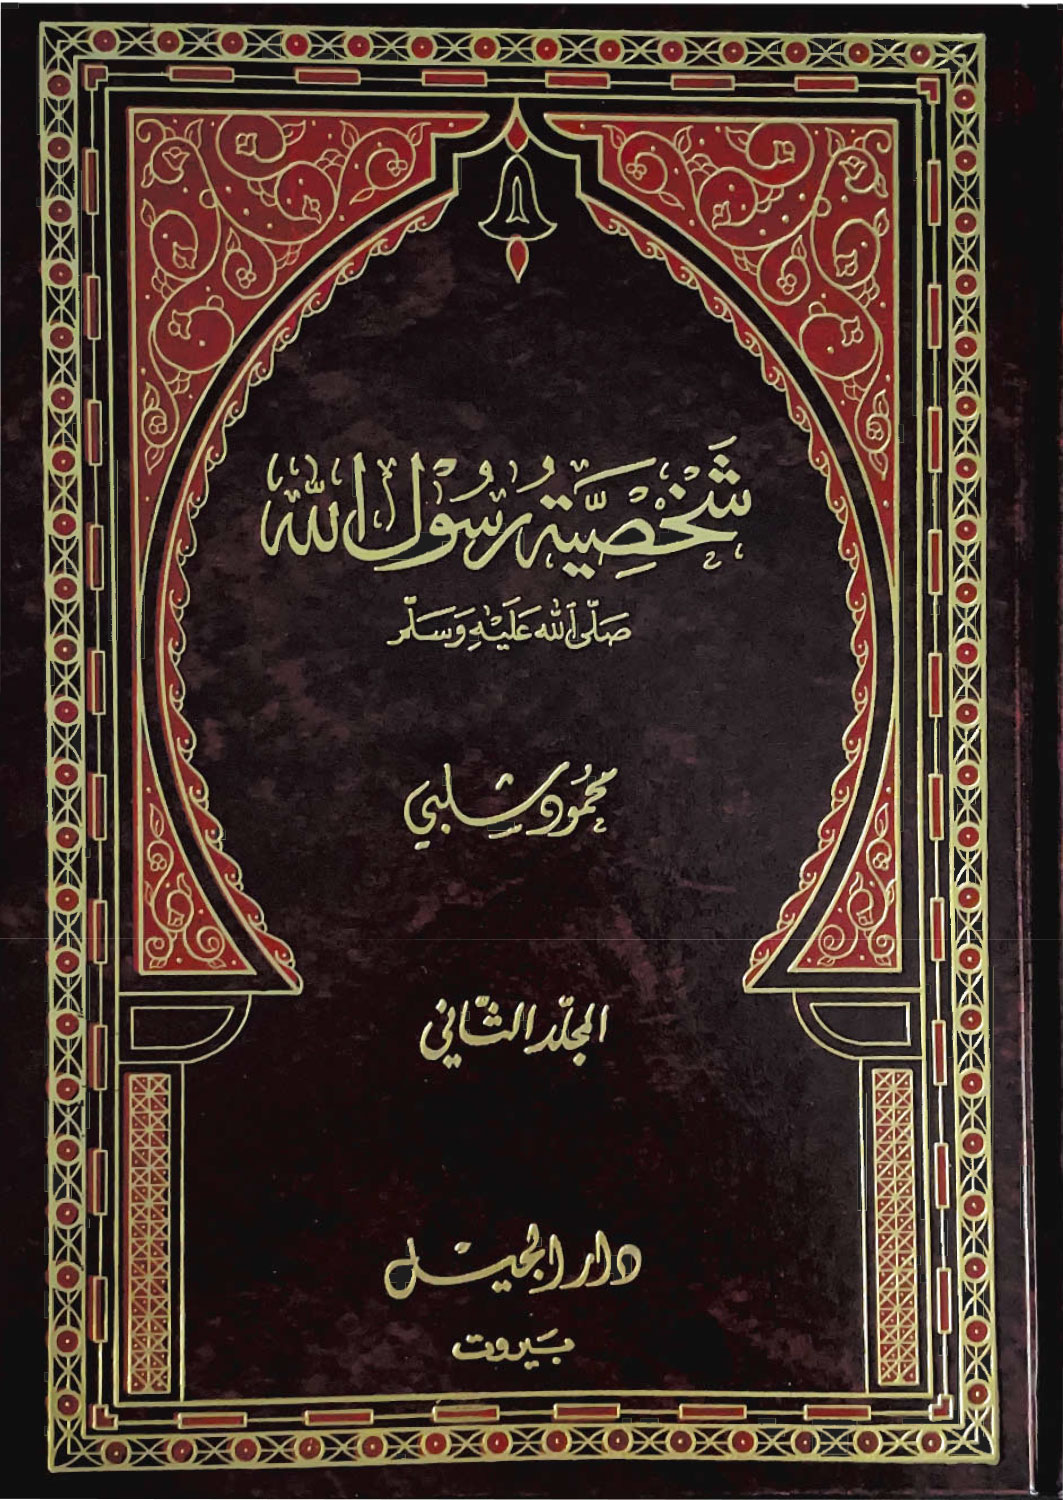 شخصية رسول الله
صلى الله عليه وسلم
محمود شلبي
المجلد الثاني
دار الجيل
بيروت